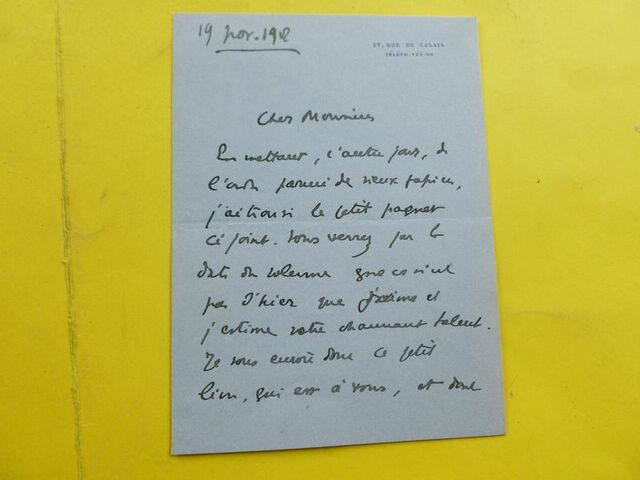 19 nov. 1912
17, RUE DE CALAIS
TÉLÉPH.
Cher Monsieur
En mettant, l'autre jour, de
l'ordre parmi de vieux papiers,
j'ai trouvé le petit paquet
ci joint. Vous verrez par la
date du volume que ce n'est
pas d'hier que j'aime et
j'estime votre charmant talent.
Je vous envoie donc ce petit
livre, qui est à vous, et dont